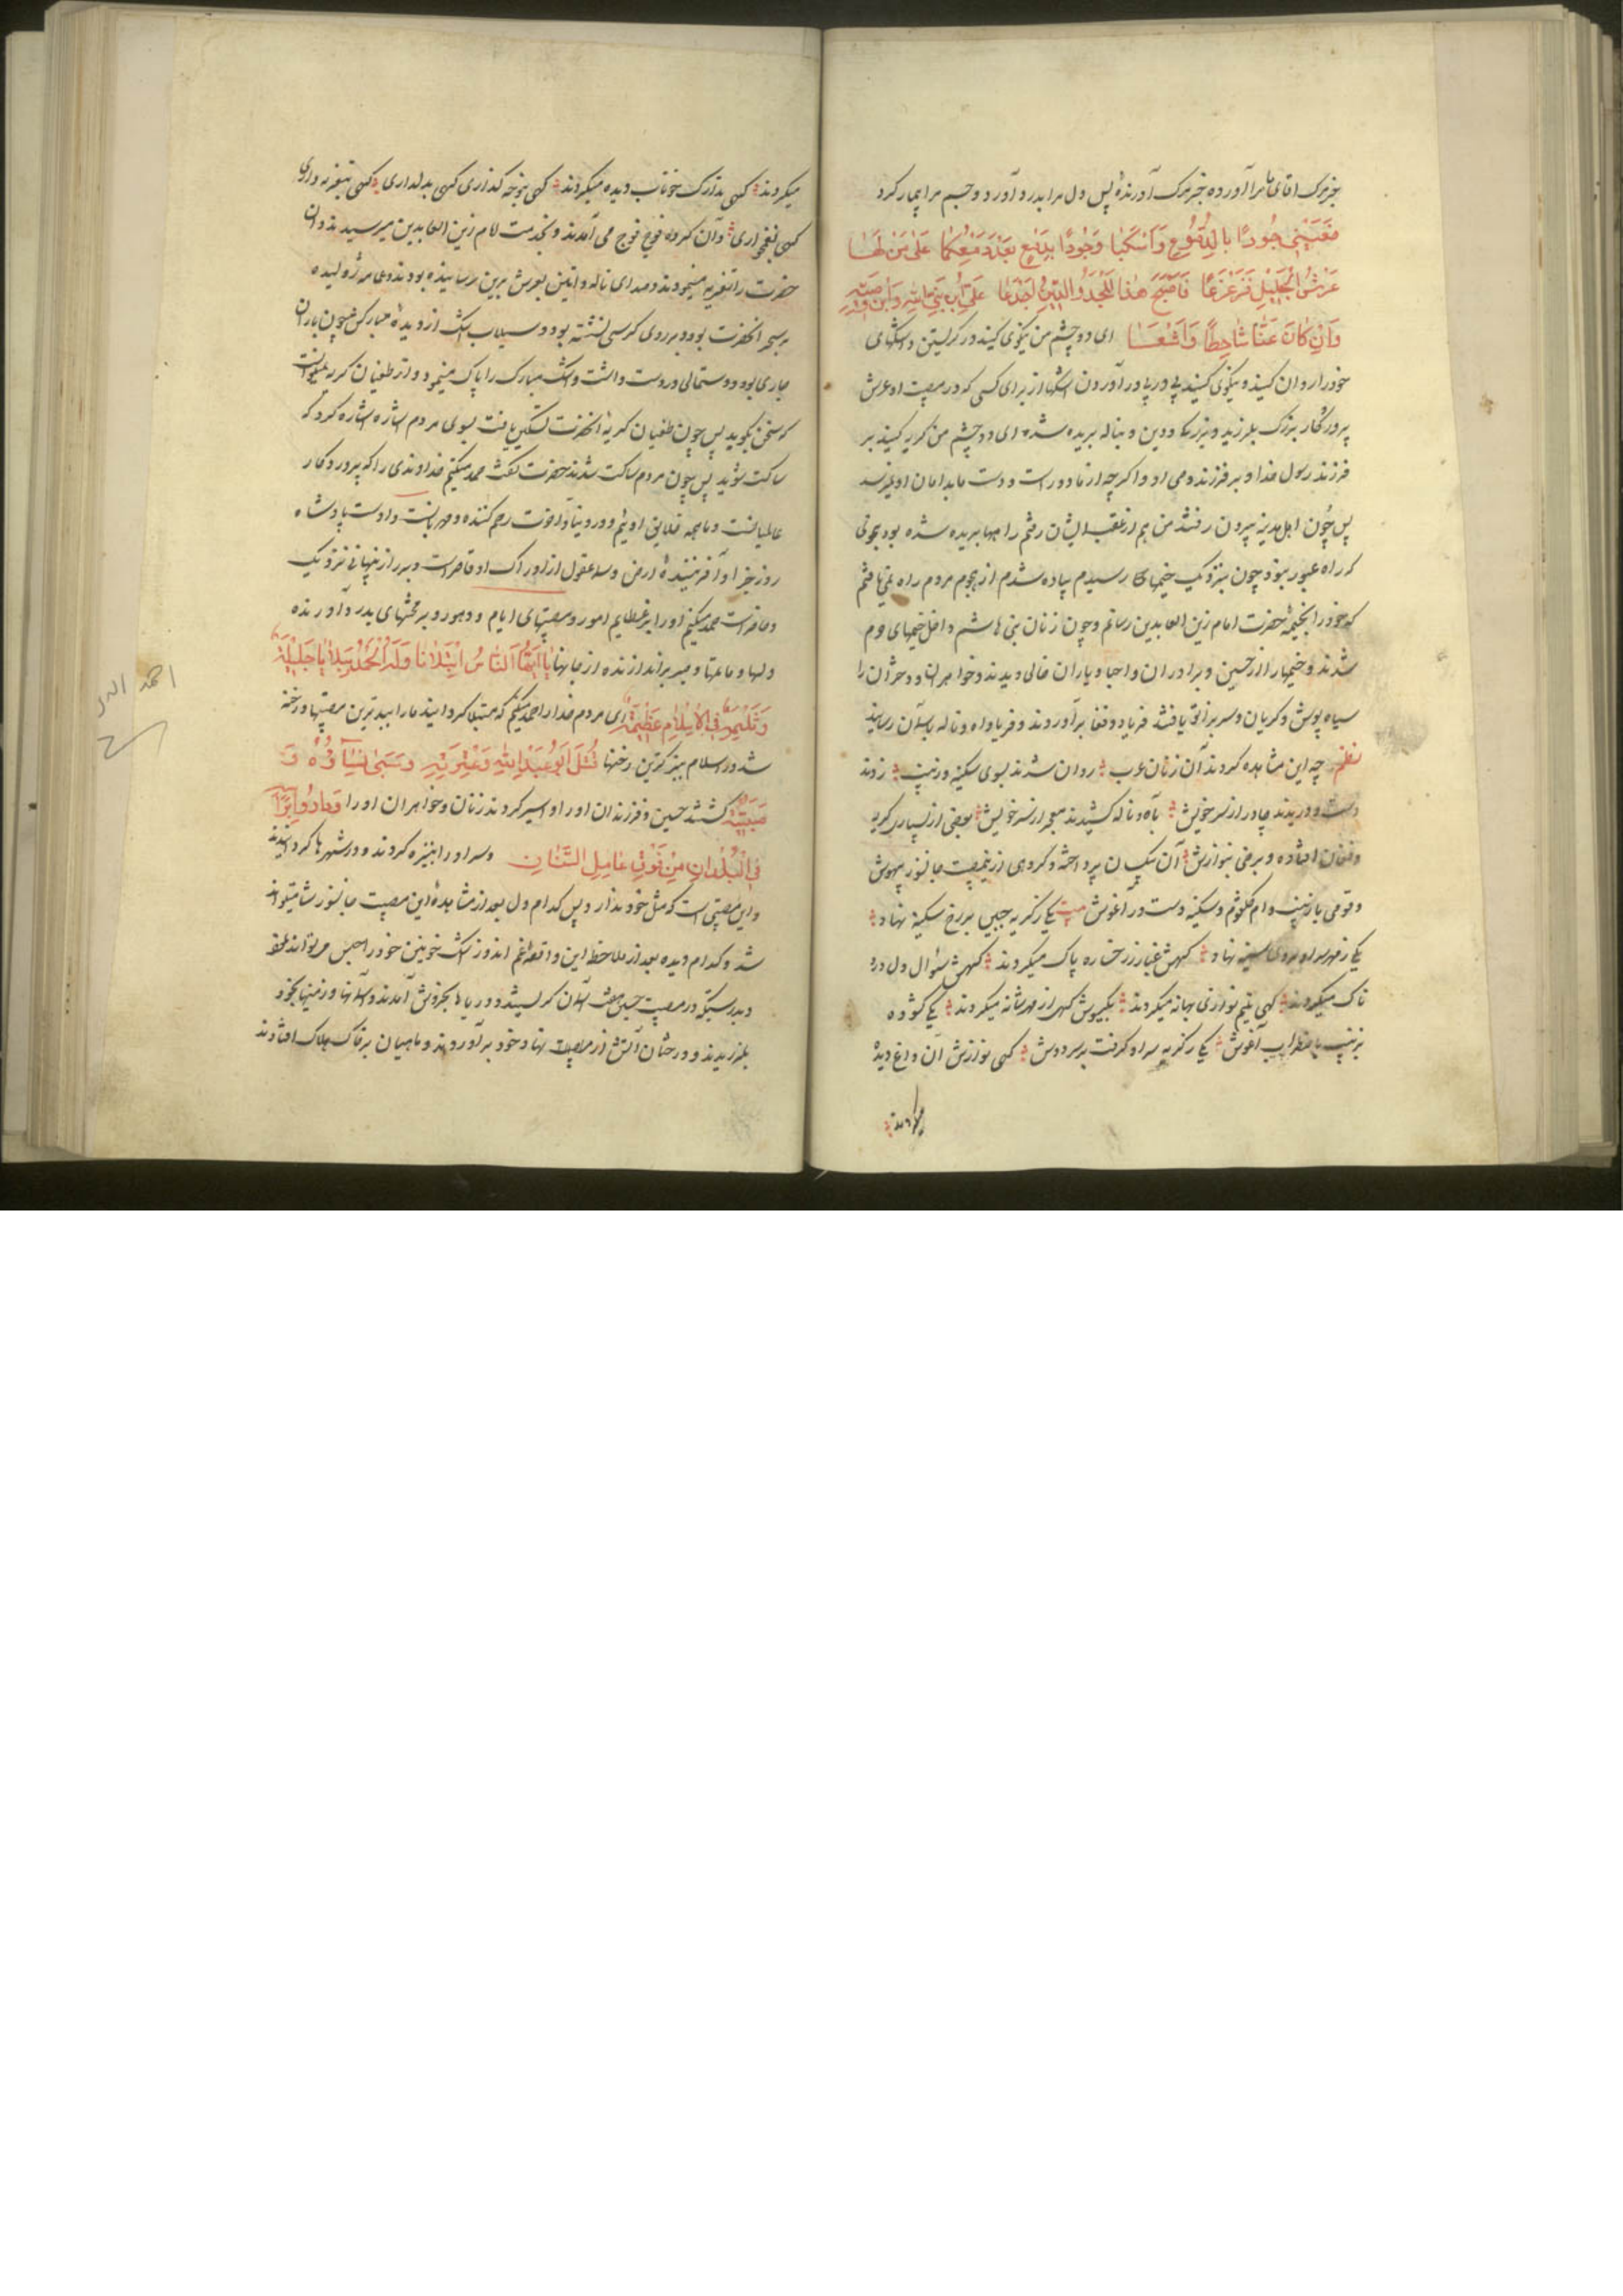 خبر مرگ اقای ما را آورده خبر مرگ آورنده پس دل مرا بدرد آورد و جسم مرا بیمار کرد
فَعَیْنَیَّ جُودًا بِالدُّمُوعِ وَاَسْکِبٰا وَجُودًا بِدَمْعٍ بَعْدَ دَمْعِکُمٰا عَلیٰ مَنْ دَهیٰ
عَرْشَ الْجَلیٖلِ فَزَعْزَعٰا فَاَصْبَحَ هٰذَا الْمَجْدُ وَالدّیٖنُ اَجْدَعٰا عَلَی ابْنِ نَبِیِّ اللّٰهِ وَابْنِ وَصِیِّهِ
وَاِنْ کٰانَ عَنّٰا شٰاحِطًا وَاَشْسَعٰا ای دو چشم من نیکوی کنید در گریستن و اشکهای
خود را روان کنید و نیکوی کنید پی در پی در آوردن اشکها از برای کسی که در مصیبت او عرش
پروردگار بزرگ بلرزید و بزرگی و دین و بناله بریده شد ای دو چشم من گریه کنید بر
فرزند رسول خدا و بر فرزند وصی او و اگرچه از ما دور است و دست ما بدامان او نمیرسد
پس چون اهل مدینه بیرون رفتند من هم از عقب ایشان رفتم راهها بریده شده بود بنحوی
که راه عبور نبود چون بنزدیک خیمهای رسیدم پیاده شدم از هجوم مردم راه نمی یافتم
که خود را بخیمهٔ حضرت امام زین العابدین رسانم و چون زنان بنی هاشم داخل خیمهای حرم
شدند و خیمها را از حسین و برادران و احبا و یاران خالی دیدند و خواهران و دختران را
سیاه پوش و گریان و سر بزانو یافتند فریاد و فغا برآوردند و فریاد واه و ناله بآسمان رسانید
نظم چه این مشاهده کردند آن زنان عرب روان شدند بسوی سکینه و زینب زدند
دست و دریدند چادر از سر خویش بآه و ناله کشیدند معجر از سر خویش بعضی از بسیاری گریه
و فغان افتاده و برخی بنوازش آن بیکسان پرداخته و گروهی از غم مصیبت جانسوز بیهوش
و قومی با زینب و ام کلثوم و سکینه دست در آغوش بیت یکی ز گریه جبین بر رخ سکینه نهاد
یکی ز مهر سر او بروی سینه نهاد گهیش غبار ز رخساره پاک میکردند گهیش سئوال دل درد
ناک میکردند گهی یتیم نوازی بهانه میکردند بگیسویش گهی از مهر شانه میکردند یکی گشوده
بزینب باضطراب آغوش یکی ز گریه سر او گرفت بر سر دوش گهی نوازش ان داغ دیدهٔ
میکردند
میکردند گهی تدارک خوناب دیده میکردند گهی بنوحه گذاری گهی بدلداری گهی بتعزیه داری
گهی بغمخواری و آن گروه فوج فوج می آمدند و بخدمت امام زین العابدین میرسیدند و ان
حضرت را تعزیه مینمودند و صدای ناله و انین بعرش برین رسانیده بودند و موی ژولیده
بر سر آنحضرت بود و بر روی کرسی نشسته بود و سیلاب اشک از دیدهٔ مبارکش چون باران
جاری بود و دستمالی در دست داشت و اشک مبارک را پاک مینمود و از طغیان گریه نمیتوانست
که سخن بگوید پس چون طغیان گریهٔ آنحضرت تسکین یافت بسوی مردم اشاره کرد که
ساکت شوید پس چون مردم ساکت شدند حضرت گفت حمد میکنم خداوندی را که پروردگار
عالمیانست و ما همه خلایق اوئیم و در دنیا و آخرت رحم کننده و مهربانست و اوست پادشاه
روز جزا و آفرینندهٔ ارض و سما عقول از ادراک او قاصر است و بر رازنهانی نزدیک
و حاضر است حمد میکنم او را بر عظایم امور و مصیبتهای ایام و دهور و بر محنتهای بدرد آورنده
دلها و ماتمها و صبر براندازنده از جانها یٰا اَیُّهَا النّٰاسُ ابْتَلٰانٰا وَلَهُ الْحَمْدُ بِبَلٰایٰا جَلیٖلَةٍ
وَثُلْمَةٍ فِی الْاِسْلٰامِ عَظیٖمَةٍ ای مردم خدا را حمد میکنم که مبتلا گردانید ما را ببدترین مصیبتها و رخنه
شد در اسلام بزرگترین رخنها قُتِلَ اَبُو عَبْدِ اللّٰهِ وَعِتْرَتُهُ وَسُبِیَ نِسٰاؤُهُ وَ
صِبْیَتُهُ کشتند حسین و فرزندان او را و اسیر کردند زنان و خواهران او را وَدٰارُوا بِرَأْسِهِ
فِی الْبُلْدٰانِ مِنْ فَوْقِ عٰامِلِ السِّنٰانِ و سر او را بر نیزه کردند و در شهرها گردانیدند
و این مصیبتی است که مثل خود ندارد و پس کدام دل بعد از مشاهدهٔ این مصیبت جانسوز شاد میتواند
شد و کدام دیده بعد از ملاحظه این واقعه غم اندوز اشک خونین خود را حبس میتواند نمود
و بدرستیکه در مصیبت حسین هفت آسمان گریستند و دریاها بخروش آمدند و آسمانها و زمینها بخود
بلرزیدند و درختان آتش از مصیبت نهاد خود برآوردند و ماهیان بر خاک هلاک افتادند